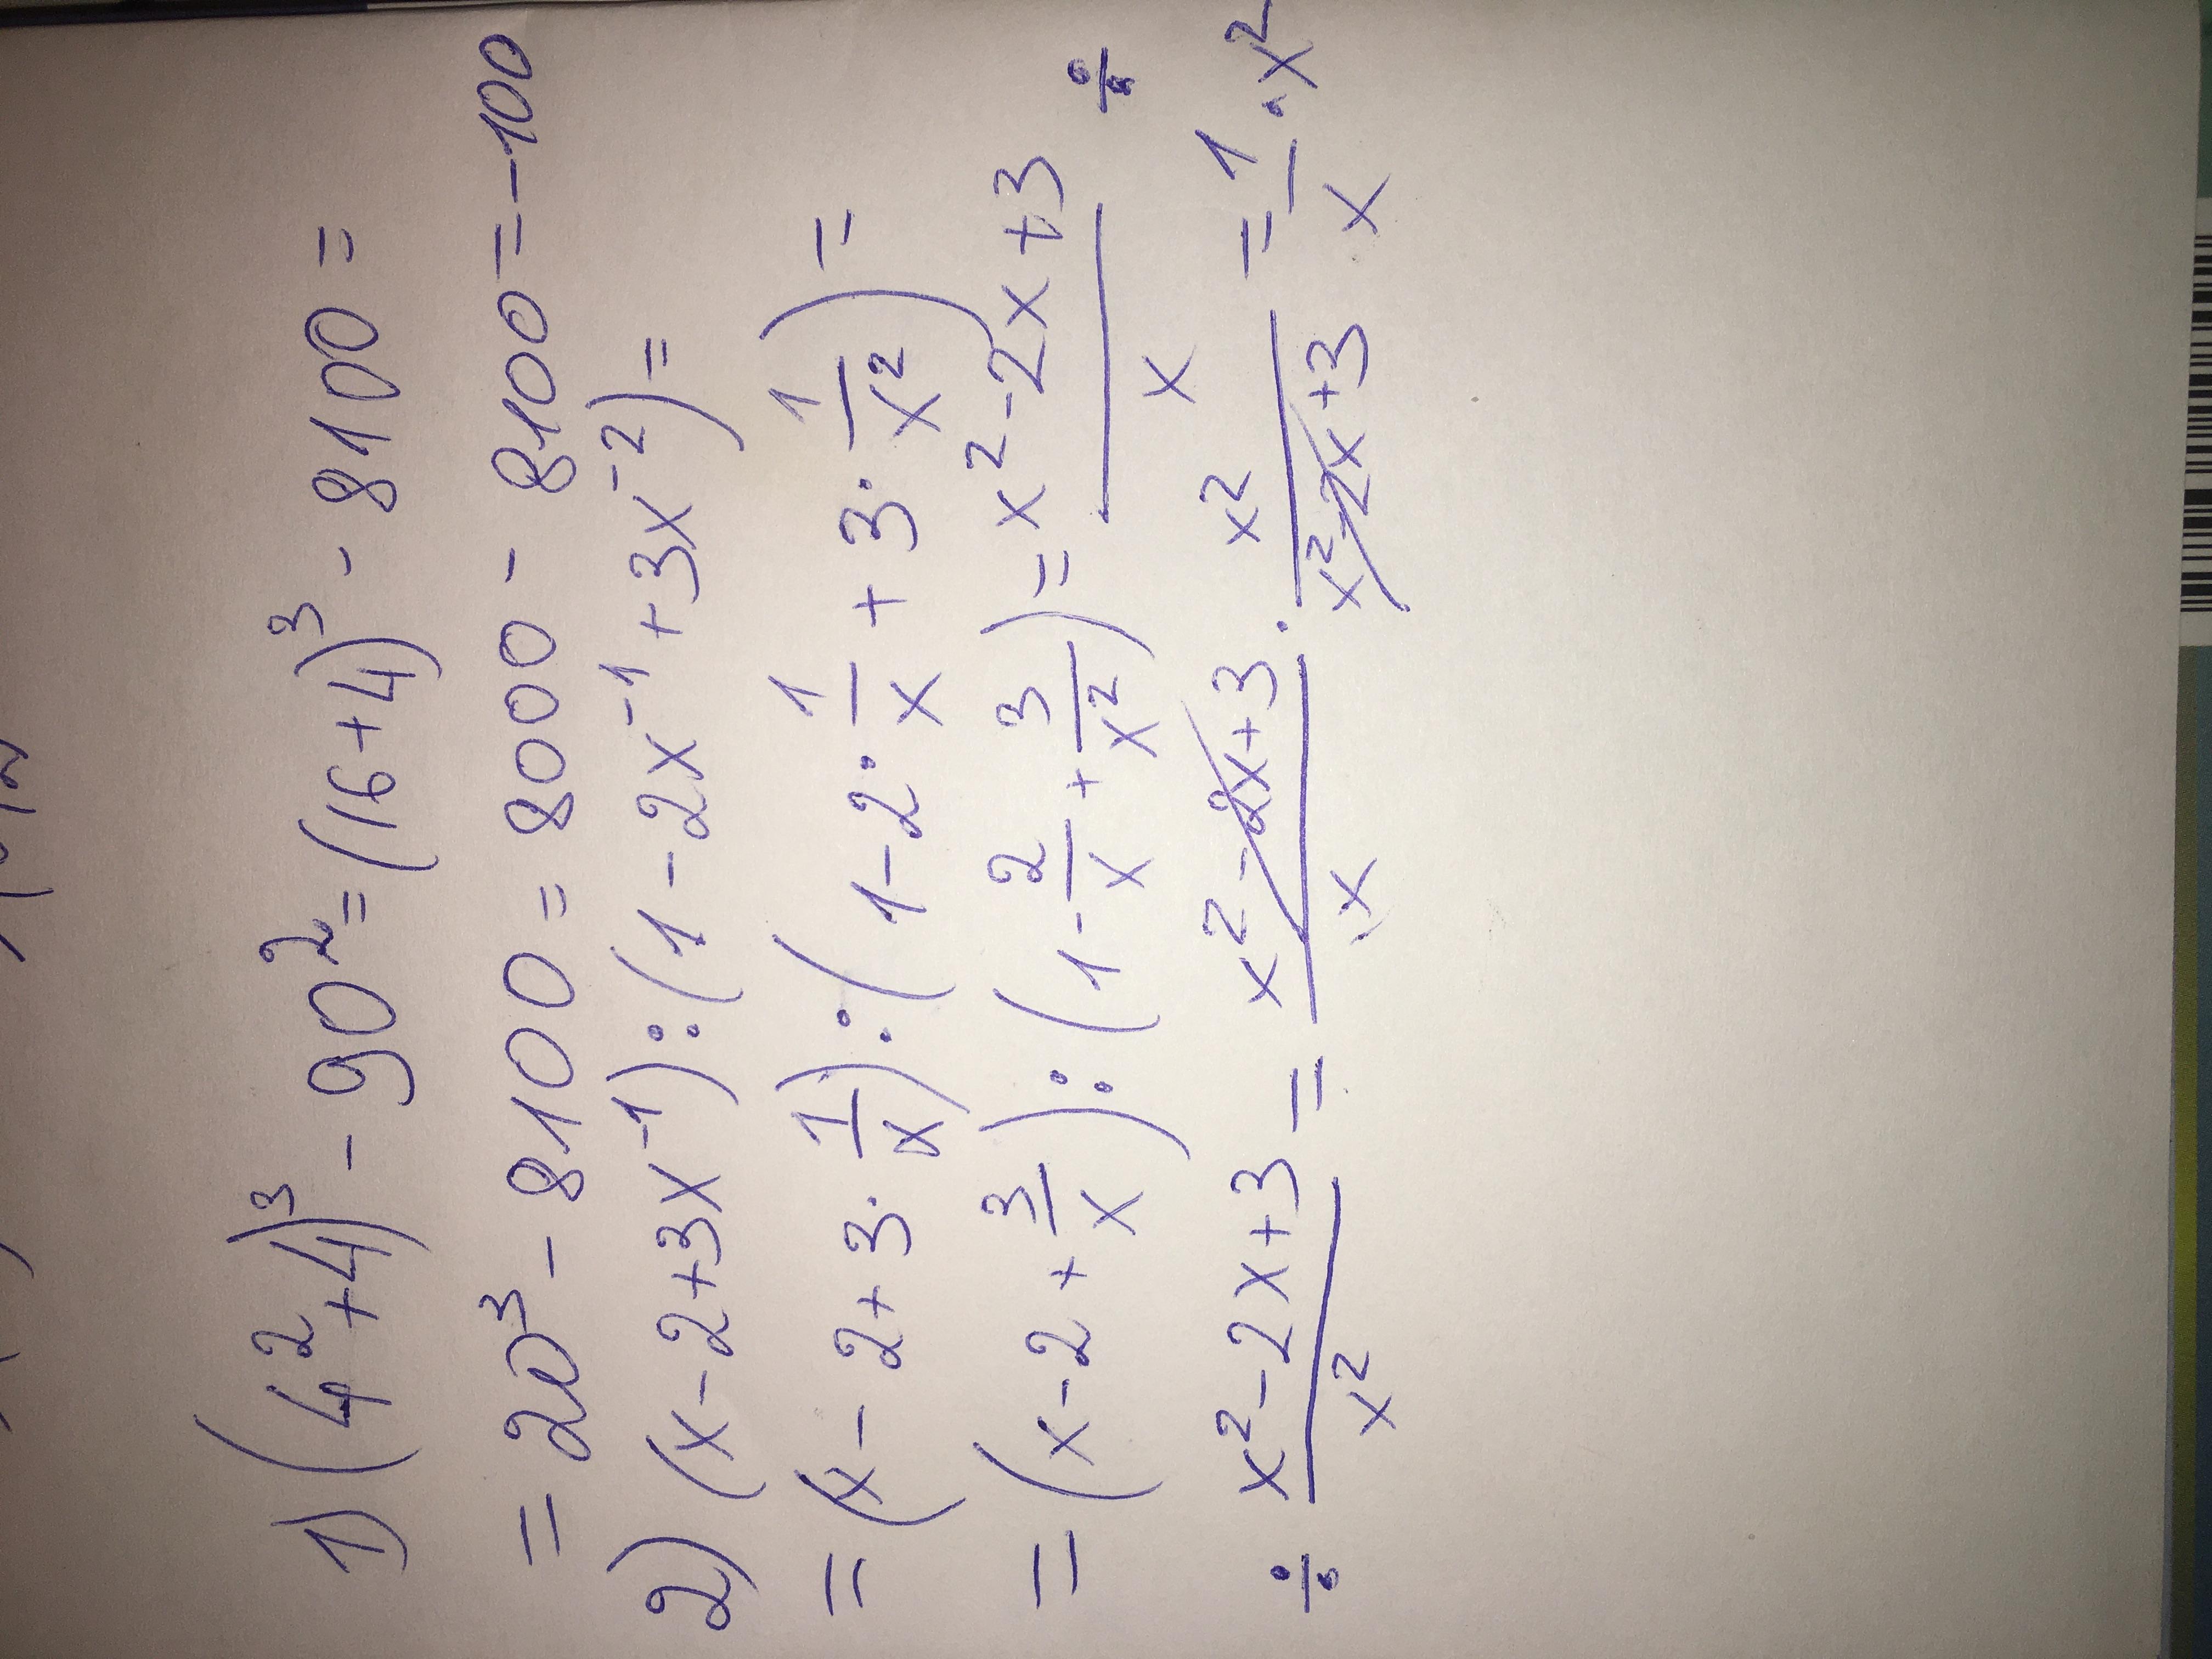 1) (4²+4)³ - 90² = (16+4)³ - 8100 =
= 20³ - 8100 = 8000 - 8100 = -100
2) (x-2+3x⁻¹):(1-2x⁻¹+3x⁻²)=
= (x-2+3·1/x):(1-2·1/x+3·1/x²)=
= (x-2+3/x):(1-2/x+3/x²)= x²-2x+3/x ÷
÷ x²-2x+3/x² = x²-2x+3/x · x²/x²-2x+3 = 1/x·x²